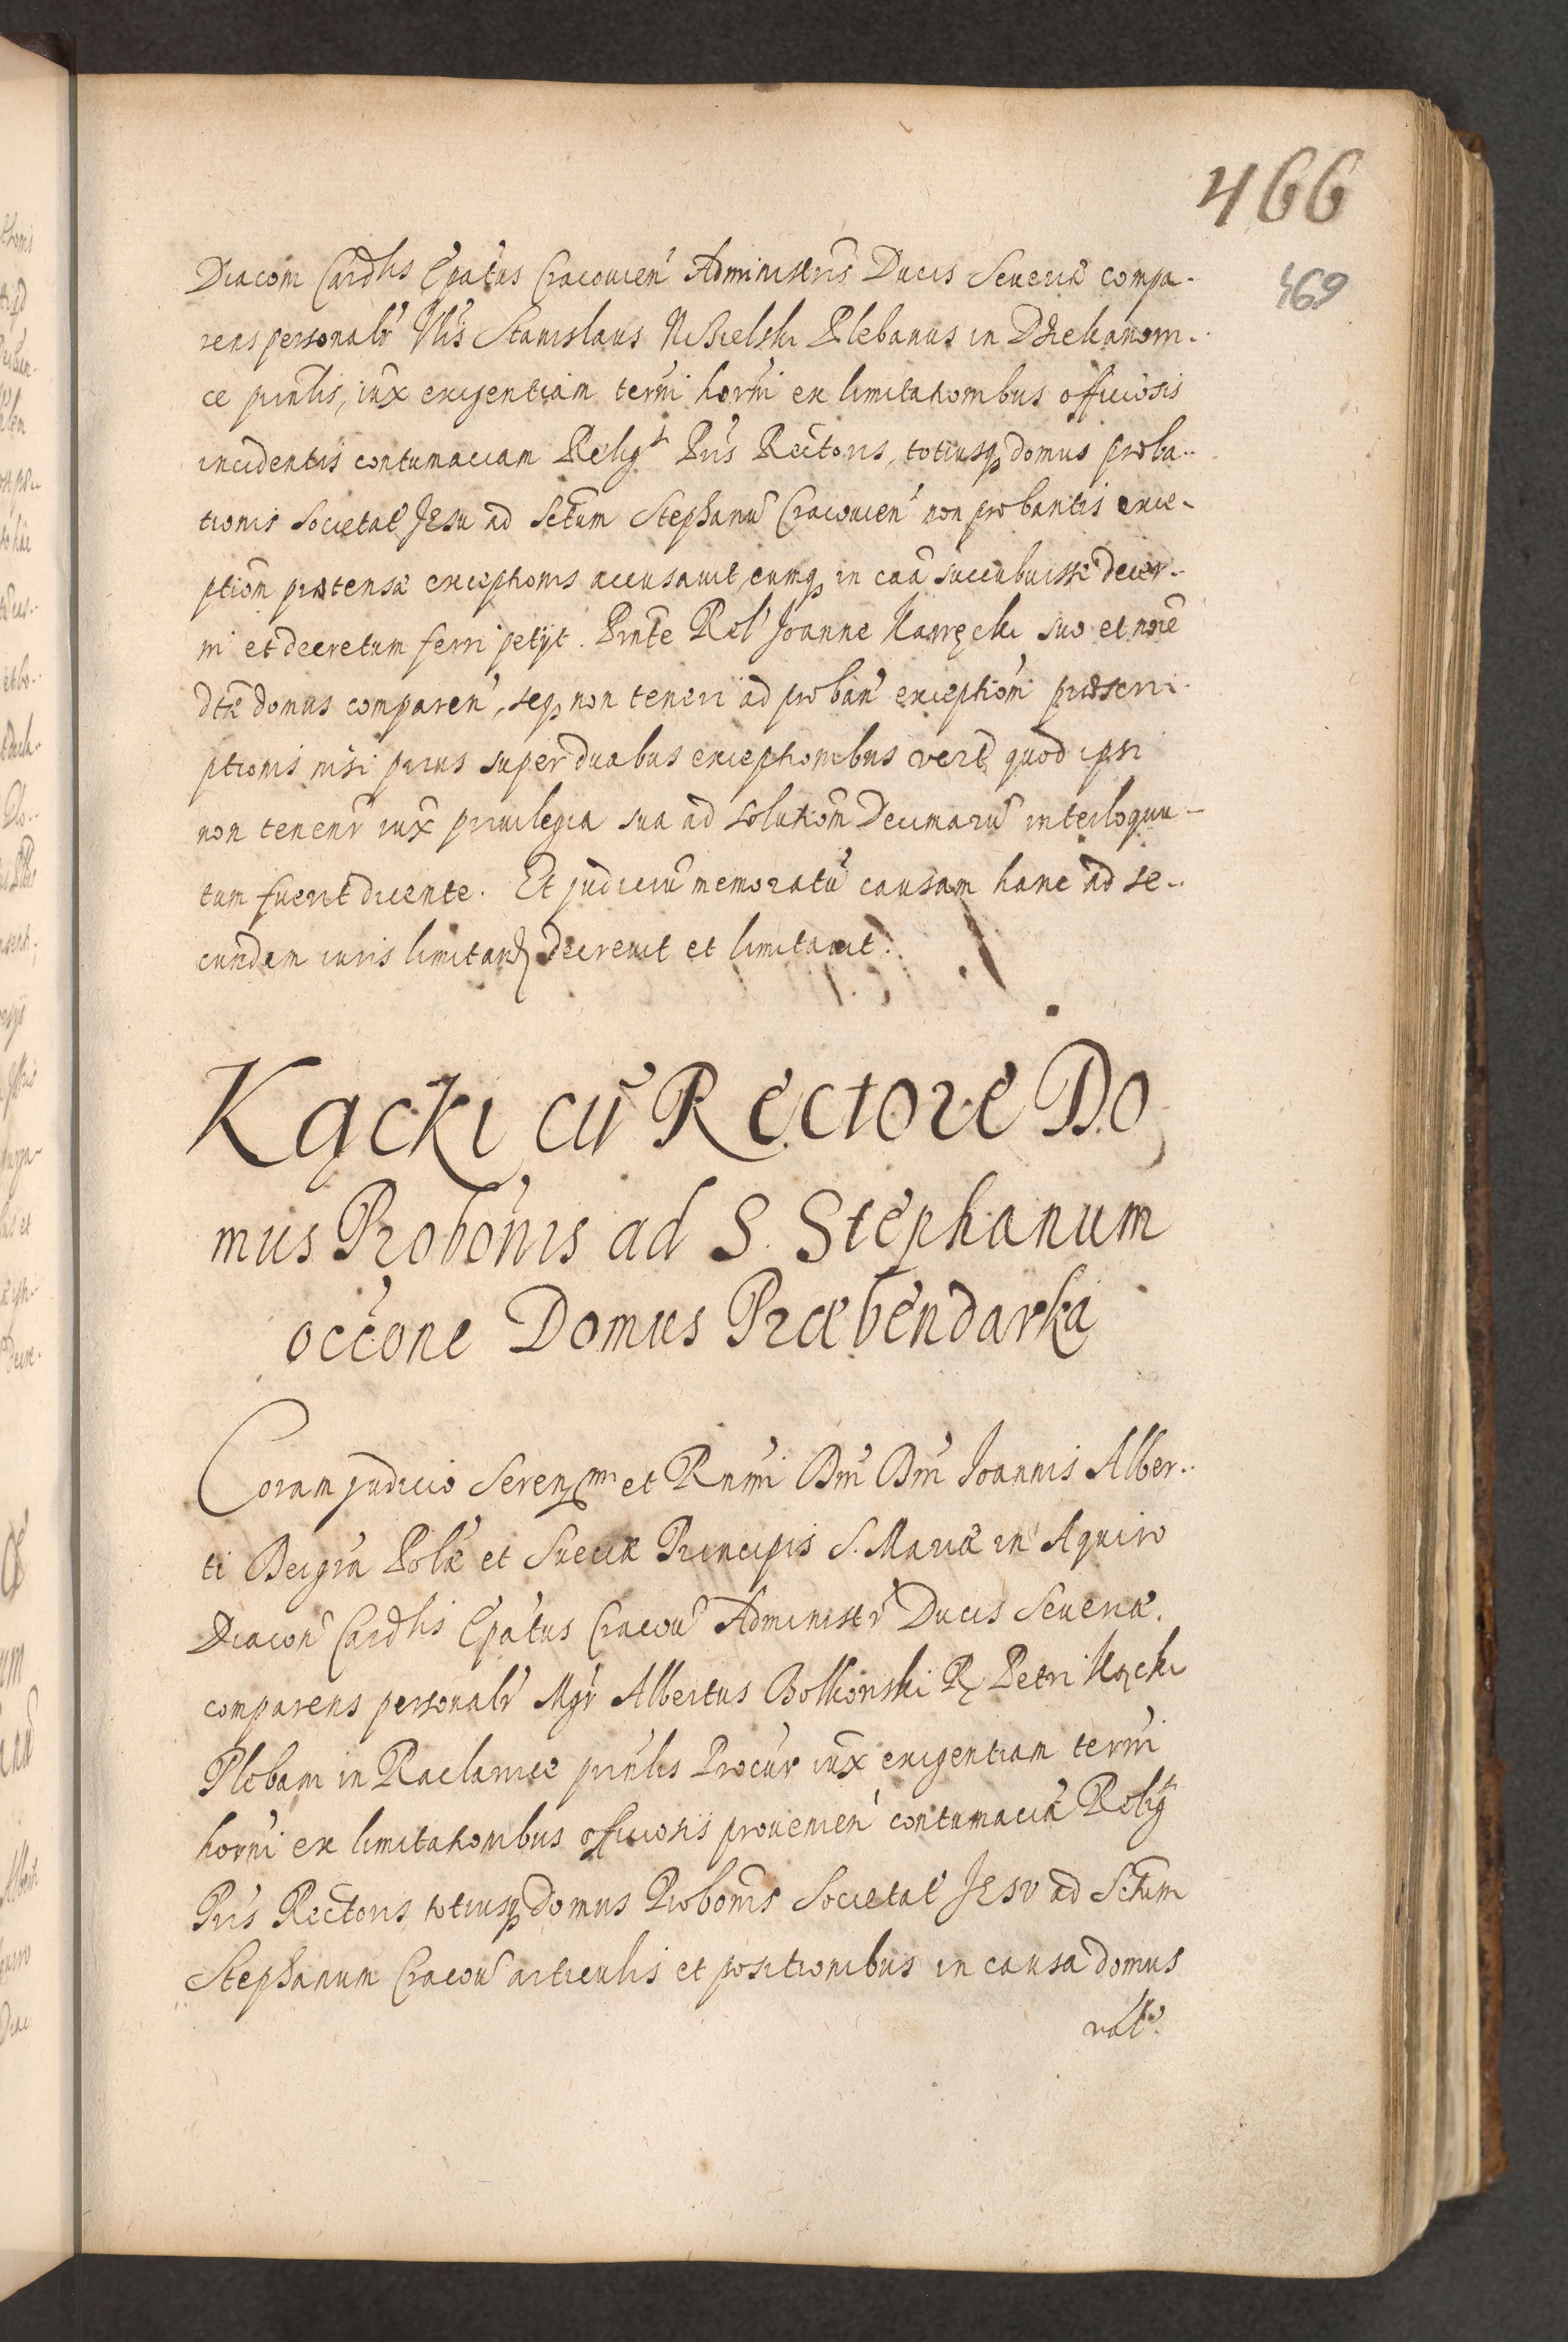 466
469
Diaconi Cardlis Epatus Cracouien Administris Ducis Seueriæ compa-
rens personalr Vlis Stanislaus Plebanus in Dziekanowi-
ce prinlis, iux exigentiam termi horni ex limitationibus officiosis
incidentis contumaciam Relig Pris Rectoris, totiusq domus proba-
tionis Societat Jesu ad Sctum Stephanu Cracouien non probantis exce-
ptiom prætensæ exceptionis accusauit eumq in caa succubuisse decer-
ni et decretum ferri petijt. Pnte Rel Joanne Kawęcki suo et noie
dtæ domus comparen, seq non teneri ad proban exceptiom præscri-
ptionis nisi prius super duabus exceptionibus quod ipsi
non tenenr iux priuilegia sua ad solutiom Decimaru interloquu-
tum fuerit dicente. Et judiciu memoratu causam hanc ad se-
cundam iuris limitand decreuit et limitauit.
Kącki cu Rectore Do
mus Probonis ad S. Stephanum
occone Domus Præbendarka
Coram judicio Seren mi et Rnmi Dni Dni Joannis Alber-
ti Dei gra Polæ et Sueciæ Principis S. Mariæ in Aquiro
Diacon Cardlis Epatus Cracou Administr Ducis Seueriæ.
comparens personalr Mgr Albertus Bolkonski R Petri Kącki
Plebani in Raclawice prinlis Procur iux exigentiam termi
horni ex limitationibus officiosis prouenien contumacia Relig
Pris Rectoris, totiusq domus Probonis Societat JESV ad Sctum
Stephanum Cracou articulis et positionibus in causa domus